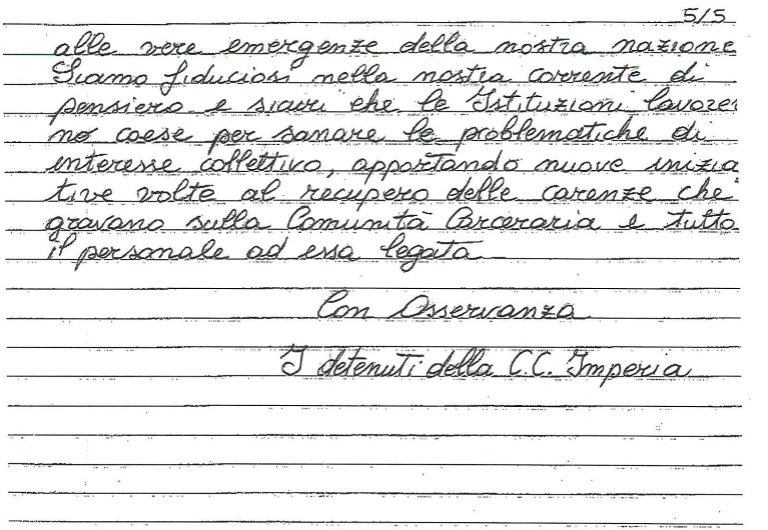 5/5
alle vere emergenze della nostra nazione
Siamo fiduciosi nella nostra corrente di
pensiero e sicuri che le Istituzioni lavorer
no coese per sanare le problematiche di
interesse collettivo, apportando nuove inizia
tive volte al recupero delle carenze che
gravano sulla Comunità Carceraria e tutto
il personale ad essa legata
Con Osservanza
I detenuti della C.C. Imperia